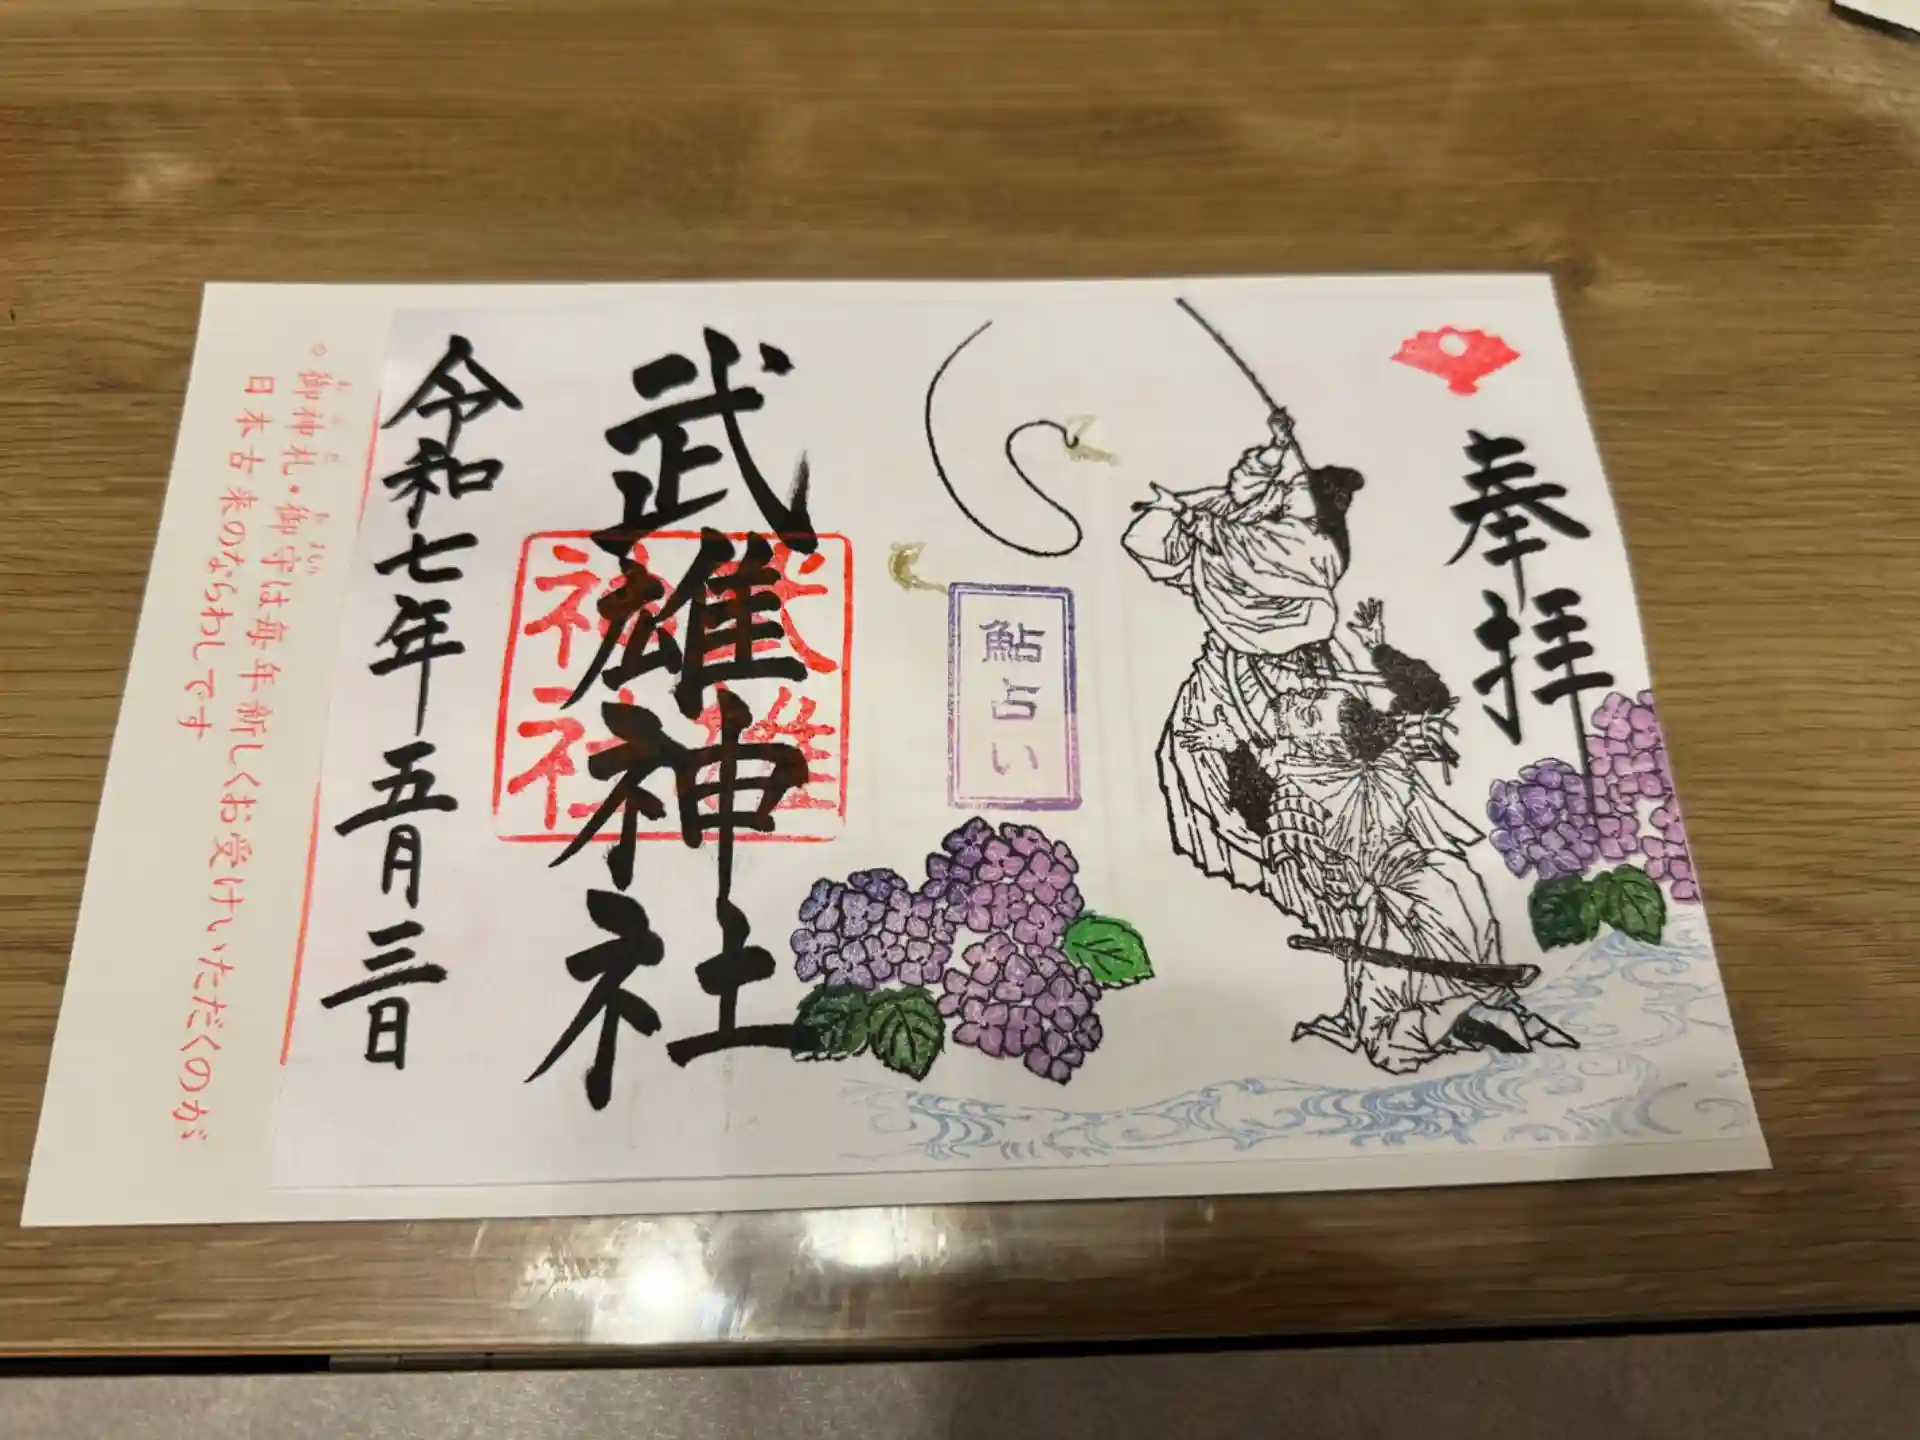 奉拝
鮎占い
武雄神社
武雄
神社
令和七年五月三日
。御神札・御守は毎年新しくお受けいただくのが
日本古来のならわしです